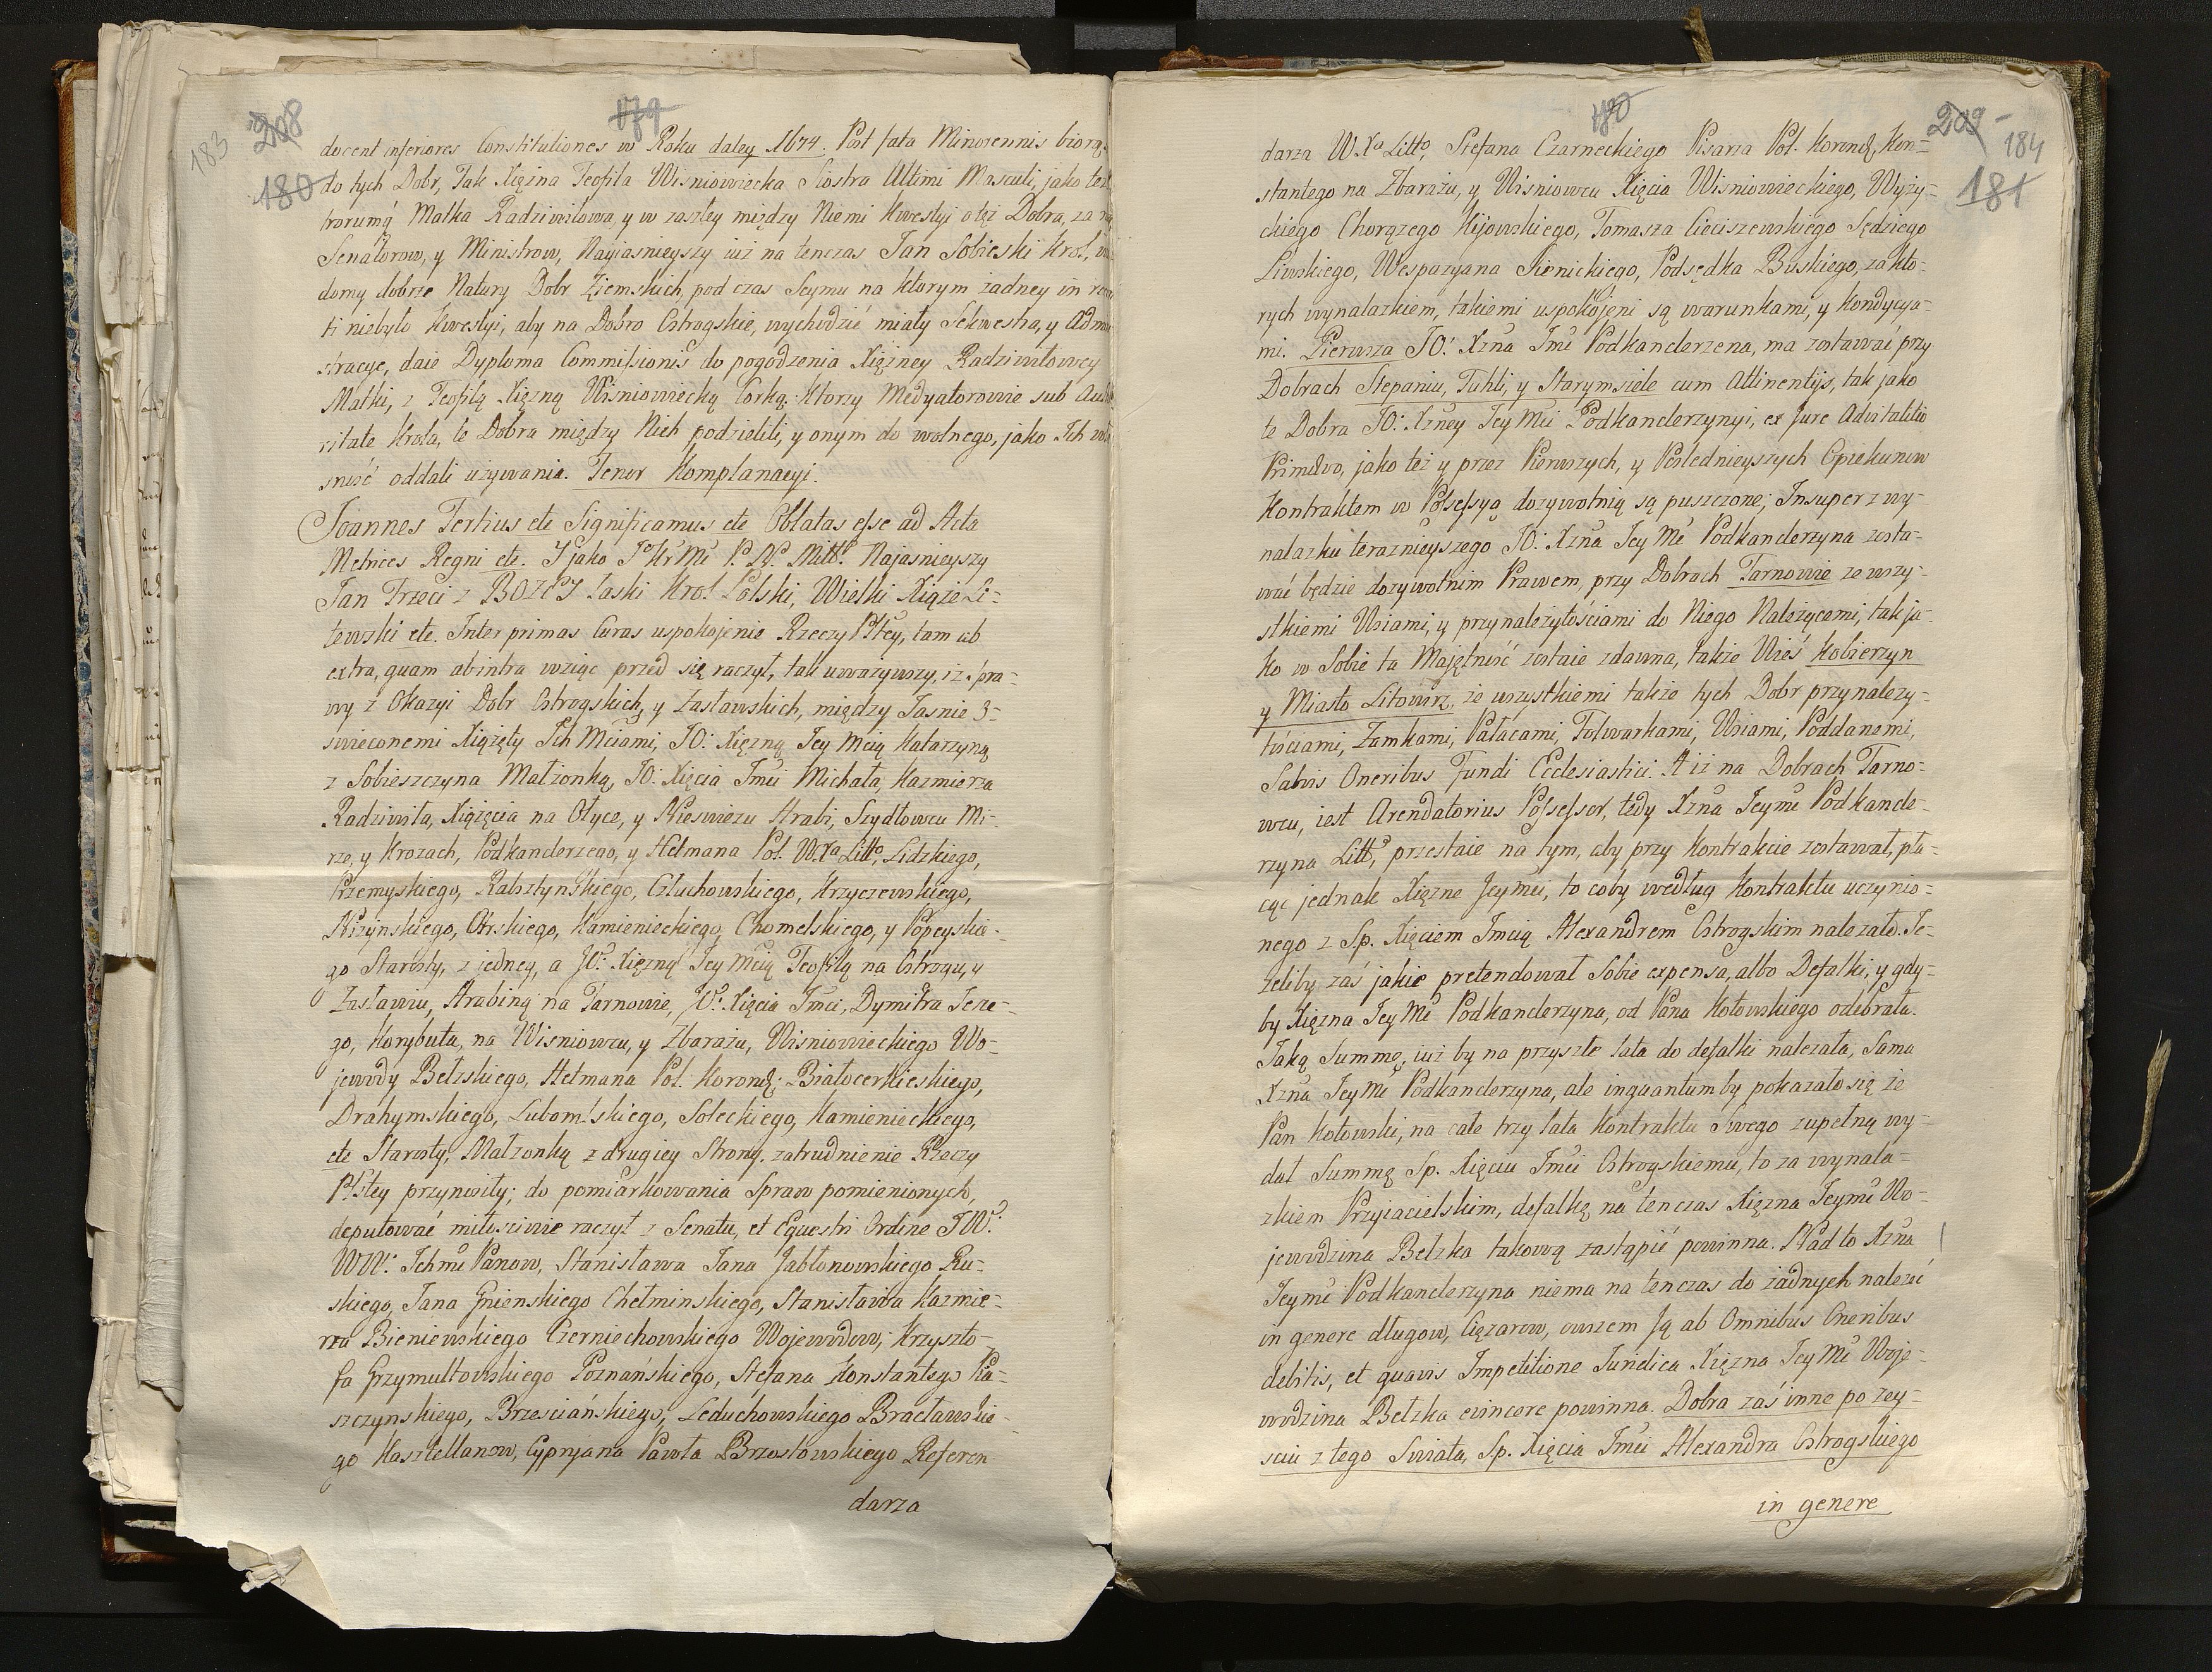 183
208
180
179
docent inferiores Constitutiones w Roku daley 1674. Post fata Minorennis biorą
do tych Dobr, Tak Xiężna Teofila Wisniowiecka Siostra Ultimi Masculi, jako też
trorumq Matka Radziwiłowa, y w zaszłey między Niemi kwestyi o też Dobra, za
Senatorow, y Ministrow, Nayiasnieyszy iuż na tenczas Jan Sobieski Krol,
domy dobrze Natury Dobr Ziemskich, pod czas Seymu na ktorym żadney in
ti niebyło kwestyi, aby na Dobro Ostrogskie, wychodzić miały Sekwestra, y Admi
stracye, daie Dyploma Commissionis do pogodzenia Xiężney Radziwiłowey
Matki, z Teofilą Xiężną Wisniowiecką Corką: Ktorzy Medyatorowie sub Auth
ritate Krola, te Dobra między Nich podzielili, y onym do wolnego, jako Ich wła
sność oddali używania. Tenor Komplanacyi.
Joannes Tertius etc Significamus etc Oblatas esse ad Acta
Metrices Regni etc. Y jako J° Kr Mć P. N. Miłł: Najasnieyszy
Jan Trzeci z BOZEY Łaski Krol Polski, Wielki Xiąże Li-
tewski etc. Inter primas Curas uspokojenie Rzeczy Płtey, tam ab
extra, quam abintra wziąc przed się raczył, tak uważywszy, iż spra-
wy z Okazyi Dobr Ostrogskich, y Zasławskich, między Jasnie O-
swieconemi Xiążęty Ich Mciami, JO: Xiężną Jey Mcią Katarzyną
z Sobieszczyna Małżonką, JO: Xięcia Jmći Michała, Kazmierza
Radziwiła, Xiążęcia na Ołyce, y Nieswieżu Hrabi, Szydłowcu Mi-
rze, y Krozach, Podkanclerzego, y Hetmana Pol. W.Xa Litto, Lidzkiego,
Przemyskiego, Rabsztyńskiego, Człuchowskiego, Krzyczewskiego,
Niżynskiego, Ośskiego, Kamienieckiego, Chomelskiego, y Popeyskie-
go Starosty, z jedney, a JO: Xiężną Jey Mcią Teofilą na Ostrogu, y
Zasławiu, Hrabiną na Tarnowie, JO: Xięcia Jmći, Dymitra Jerze-
go, Korybuta, na Wisniowcu, y Zbarażu, Wisniowieckiego Wo-
jewody Bełzskiego, Hetmana Pol. Koron: Białocerkieskiego,
Drahymskiego, Lubom:skiego, Soleckiego, Kamienieckiego,
etc Starosty, Małżonką z drugiey Strony. zatrudnienie Rzeczy
Płtey przynosiły; do pomiarkowania Spraw pomienionych,
deputować miłosciwie raczył z Senatu, et Equestri Ordine JW:
WW: Ichmć Panow, Stanisława Jana Jabłonowskiego Ru-
skiego, Jana Gnienskiego Chełminskiego, Stanisława Kazmie-
rza Bieniewskiego Czerniechowskiego Wojewodow, Krzyszto-
fa Grzymułtowskiego Poznańskiego, Stefana Konstantego Pia-
szczynskiego, Brzesciańskiego, Leduchowskiego Bracławskie-
go Kasztellanow, Cypryjana Pawła Brzostowskiego Referen
darza
180
209
184
181
darza W.Xa Litto, Stefana Czarneckiego Pisarza Pol. Koronn, Kon-
stantego na Zbarażu, y Wisniowcu Xięcia Wisniowieckiego, Wyży-
ckiego Chorążego Kijowskiego, Tomasza Cieciszewskiego Sędziego
Liwskiego, Wespazyana Sienickiego, Podsędka Buskiego, za kto-
rych wynalazkiem, takiemi uspokojeni są warunkami, y Kondycya-
mi. Pierwsza JO: Xzna Jmć Podkanclerzena, ma zostawać przy
Dobrach Stepaniu, Tuhli, y Starymsiele cum Attinentijs, tak jako
te Dobra JO: Xzney Jey Mći Podkanclerzynyi, ex Jure Advitalitio
Primævo, jako też y przez Pierwszych, y Poslednieyszych Opiekunow
Kontraktem w Possessyą dożywotnią są puszczone; Insuper z wy-
nalazku teraznieyszego JO: Xzna Jey Mć Podkanclerzyna zosta-
wać będzie dożywotnim Prawem, przy Dobrach Tarnowie ze wszy-
stkiemi Wsiami, y przynależytościami do Niego Należącemi, tak ja-
ko w Sobie ta Majętność zostaie zdawna, także Wieś Kobierzyn
y Miasto Litowiż, ze wszystkiemi także tych Dobr przynależy-
tościami, Zamkami, Pałacami, Folwarkami, Wsiami, Poddanemi,
Salvis Oneribus Fundi Ecclesiastici. A iż na Dobrach Tarno-
wcu, iest Arendatorius Possessor, tedy Xzna Jeymć Podkancle-
rzyna Litt, przestaie na tym, aby przy Kontrakcie zostawał, pła-
cąc jednak Xięzne Jeymći, to coby według Kontraktu uczynio-
nego z Sp. Xięciem Jmcią Alexandrem Ostrogskim należało. Je-
żeliby zaś jakie pretendował Sobie expensa, albo Defalki, y gdy-
by Xiężna Jey Mć Podkanclerzyna, od Pana Kołowskiego odebrała.
Taką Summę, iuż by na przyszłe lata do defalki należała, Sama
Xzna Jey Mć Podkanclerzyna, ale inquantumby pokazało się że
Pan Kołowski, na całe trzy lata Kontraktu Swego zupełną wy-
dał Summę Sp. Xięciu Jmći Ostrogskiemu, to za wynala-
zkiem Przyiacielskim, defalkę na tenczas Xiężna Jeymć Wo-
jewodzina Bełzka takową zastąpić powinna. Nad to Xzna
Jeymć Podkanclerzyna niema na tenczas do żadnych należeć
in genere długow, Ciężarow, owszem Ją ab Omnibus Oneribus
debitis, et quavis Impetitione Juridica Xiężna Jey Mć Woje-
wodzina Bełzka evincere powinna. Dobra zaś inne po zey-
sciu z tego Swiata, Sp. Xięcia Jmći Alexandra Ostrogskiego
in genere